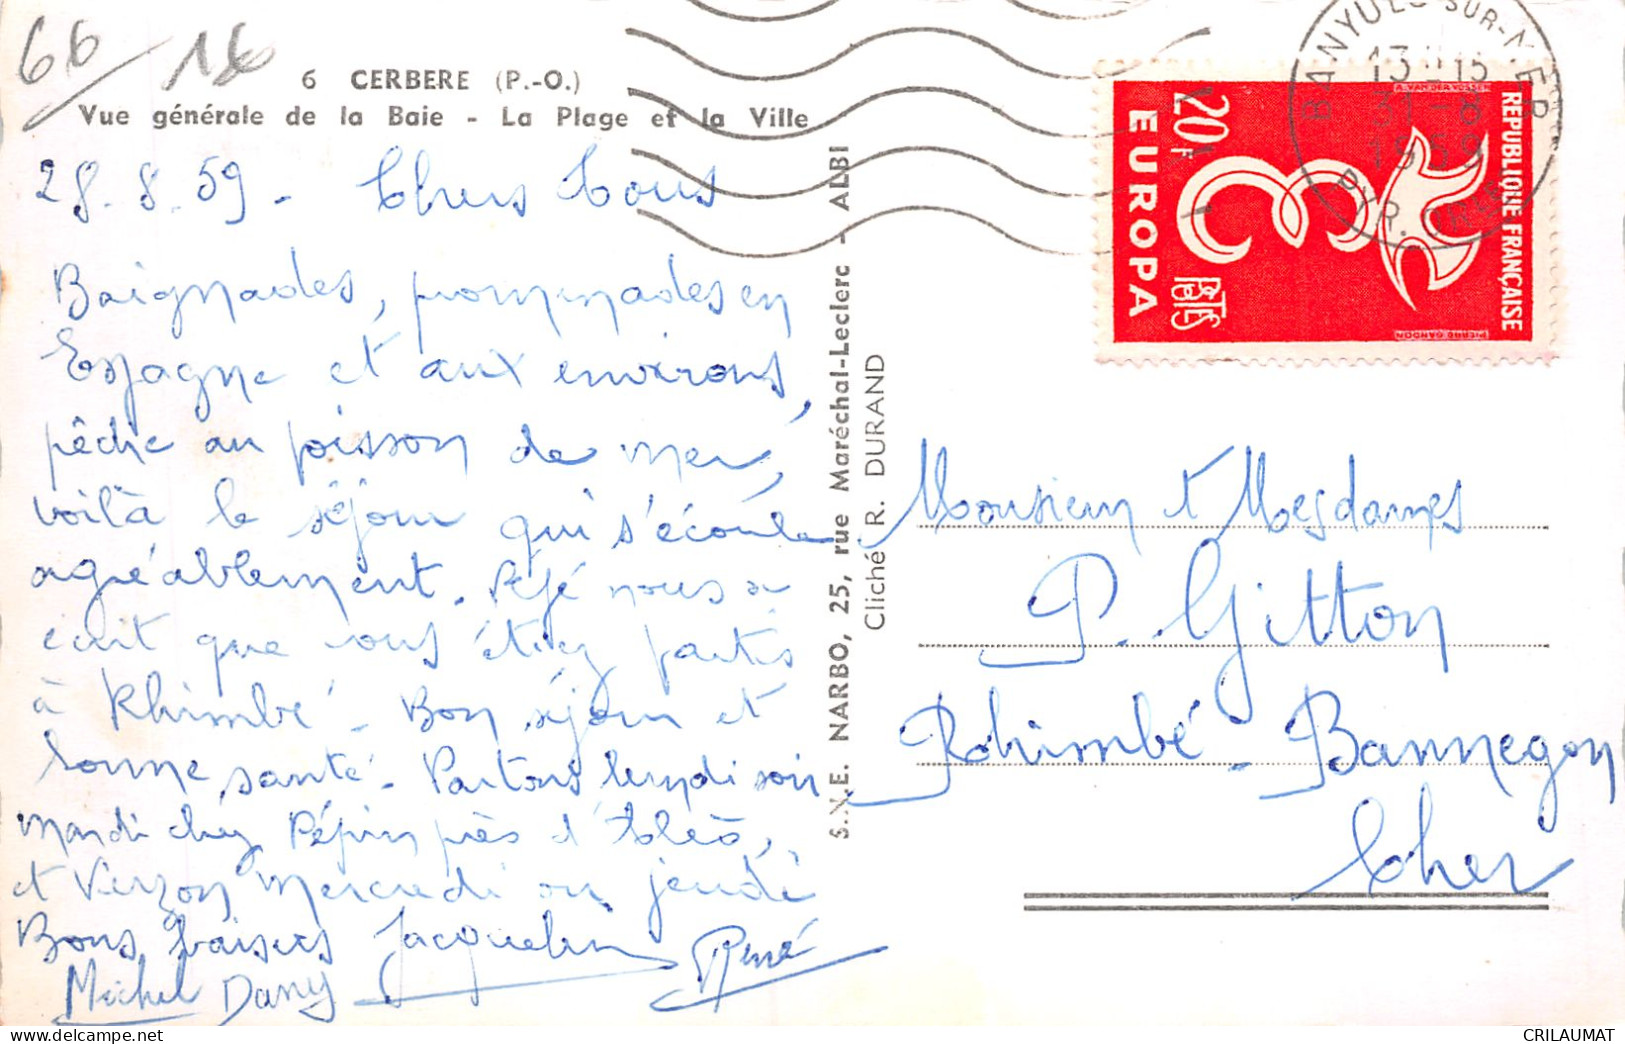 66/16
6 CERBERE (P.-O.)
Vue générale de la Baie - La Plage et la Ville
28.8.59 - Chers Tous
Baignades, promenades en
Espagne et aux environs,
pêche au poisson de mer,
voilà le séjour qui s'écoule
agréablement. Pépé nous a
écrit que vous étiez partis
à Rhimbé - Bon séjour et
bonne santé - Partons lundi soir
mardi chez Pépin près d'
et Vierzon mercredi ou jeudi
Bons baisers Jacqueline René
Michel Dany
S.N.E. NARBO, 25, rue Maréchal-Leclerc - ALBI
Cliché R. DURAND
BANYULS-SUR-MER
13H15
31-8
1959
PYR. ORLES
REPUBLIQUE FRANÇAISE
20F
EUROPA
POSTES
A. VAN DER VOSSEN
PIERRE GANDON
Monsieur et Mesdames
P. Gitton
Rohimbé - Bannegon
Cher
CRILAUMAT